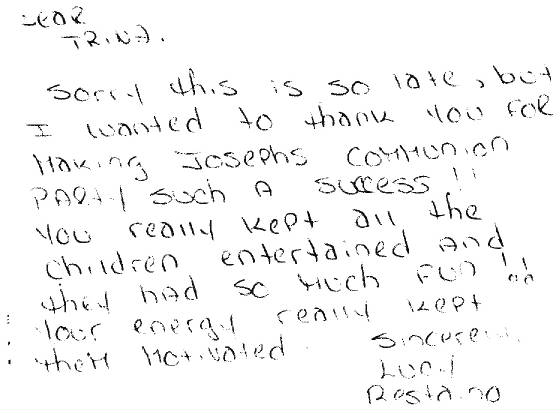 Dear
Trina.
Sorry this is so late, but
I wanted to thank you FOR
Making Josephs Communion
Party such A success!!
You really kept all the
children entertained And
they had so Much Fun!!
Your energy really kept
theM Motivated.
Sincerely,
Lucy
Restaino